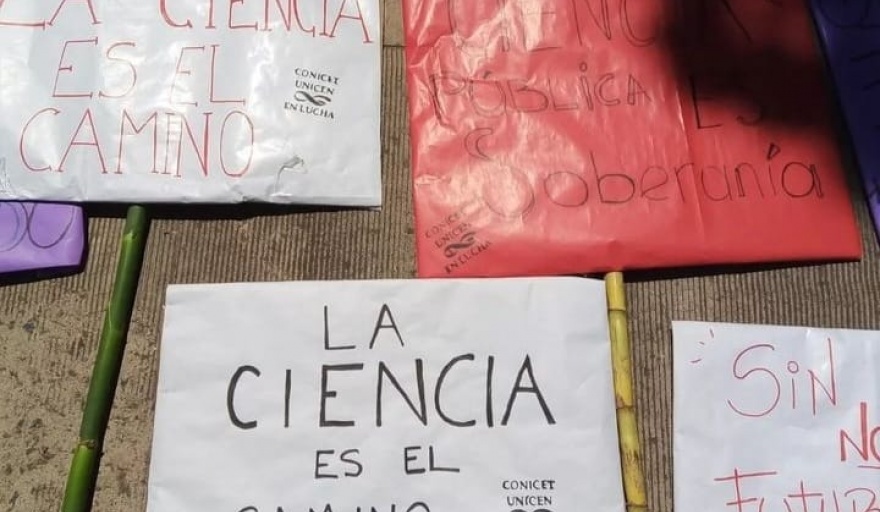 LA CIENCIA
ES EL
CAMINO
CONICET
UNICEN
EN LUCHA
CIENCIA
PÚBLICA ES
Soberanía
CONICET
UNICEN
EN LUCHA
LA
CIENCIA
ES EL
CAMINO
CONICET
UNICEN
SiN